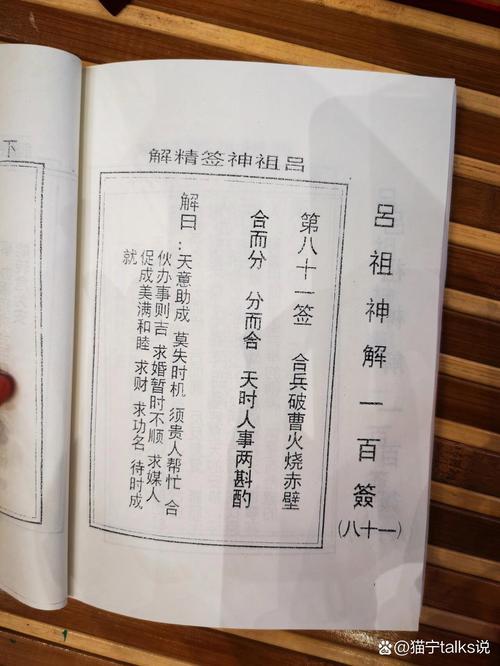 呂祖神解一百簽
(八十一)
吕祖神签精解
第八十一签 合兵破曹火烧赤壁
合而分 分而舍 天时人事两斟酌
解曰：天意助成 莫失时机 须贵人帮忙 合
伙办事则吉 求婚暂时不顺 求媒人
促成美满和睦 求财 求功名 待时成
就
@猫宁talks说